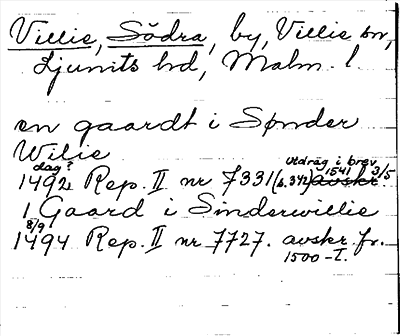 Villie, Södra, by, Villie sn,
Ljunits hd, Malm. l
en gaardt i Sønder
Wilie
dag?
utdrag i brev
1541 3/5
1492 Rep. II nr 7331 (s. 342) avskr.
1 Gaard i Sinderwillie
8/9
1494 Rep. II nr 7727. avskr. fr.
1500-T.